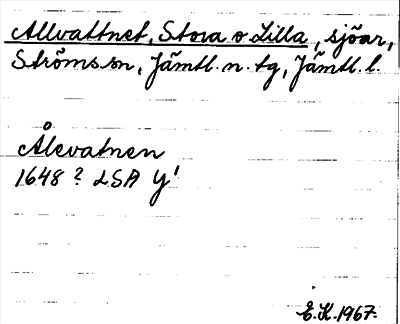 Allvattnet, Stora o Lilla, sjöar,
Ströms sn, Jämtl. n. tg, Jämtl. l.
Ålevatnen
1648 ? LSA Y¹
E. K. 1967.